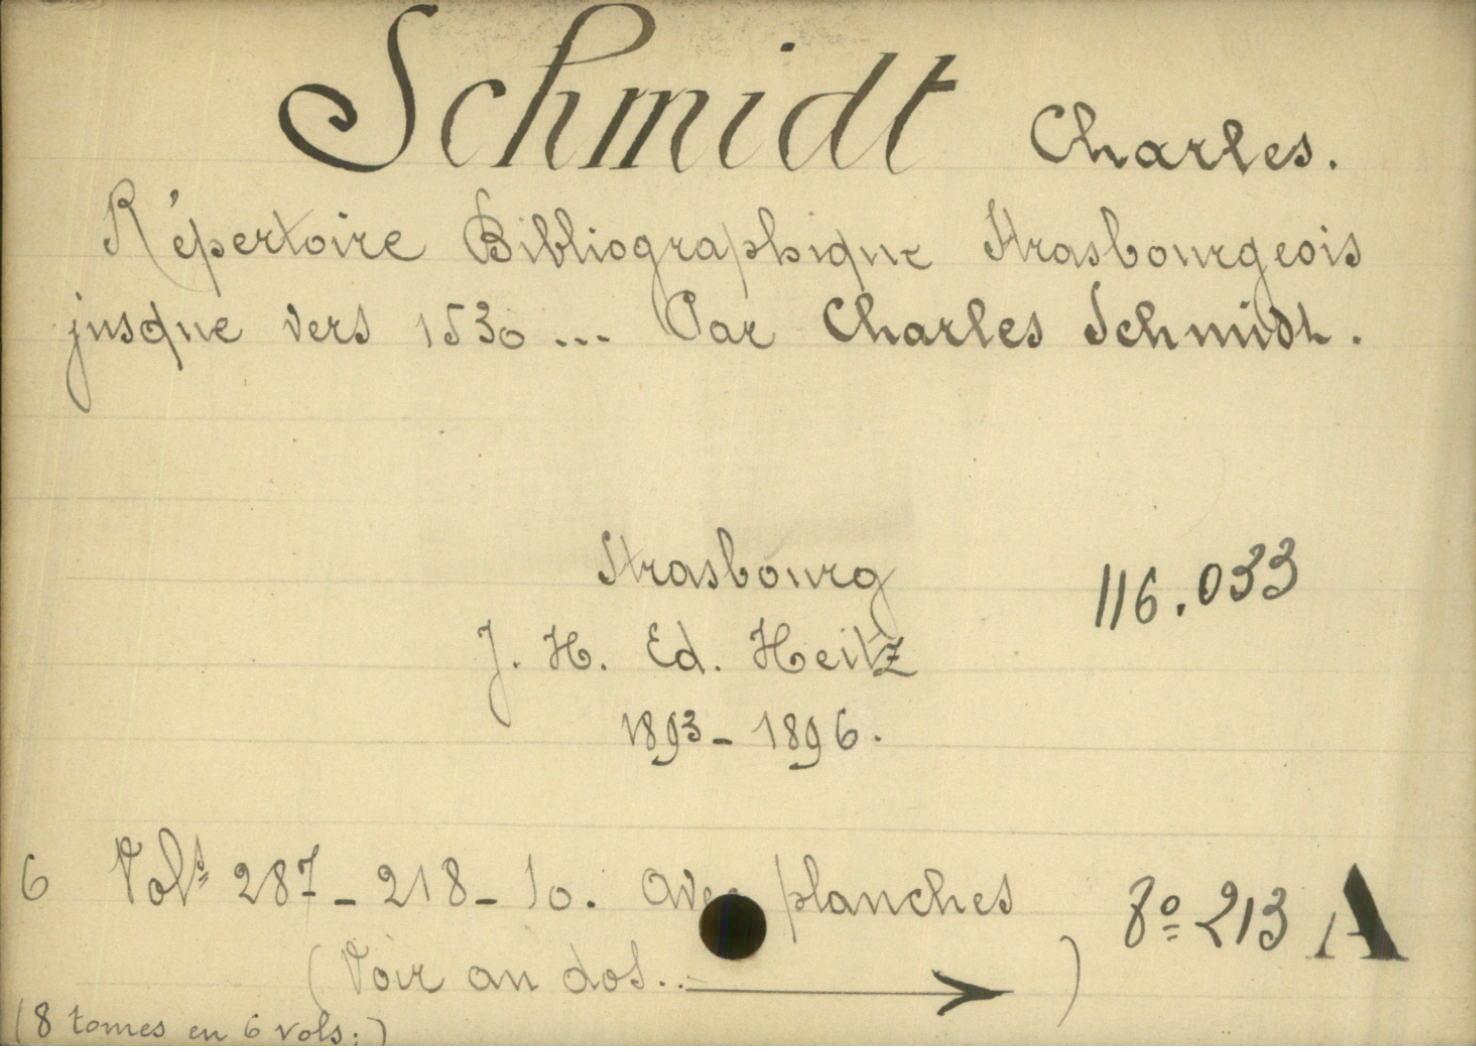 Schmidt Charles.
Répertoire Bibliographique Strasbourgeois
jusque vers 1530 ... Par Charles Schmidt.
Strasbourg
116.033
J. H. Ed. Heitz
1893-1896.
6 Vols 287-218-10. Avec planches
8º 213 A
(Voir au dos.. → )
(8 tomes en 6 vols.)